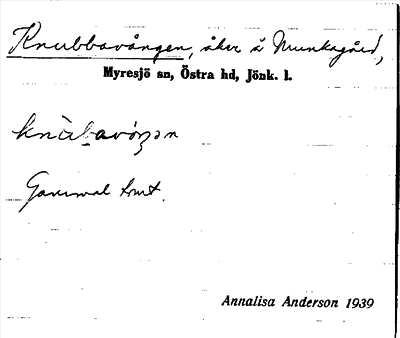 Knubbavången, åker å Munkagård,
Myresjö sn, Östra hd, Jönk. l.
Gammal tomt.
Annalisa Anderson 1939